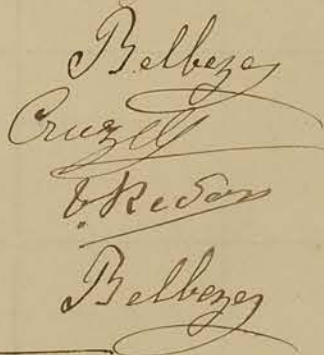 Belbeze
Cruzel
V. Redon
Belbeze